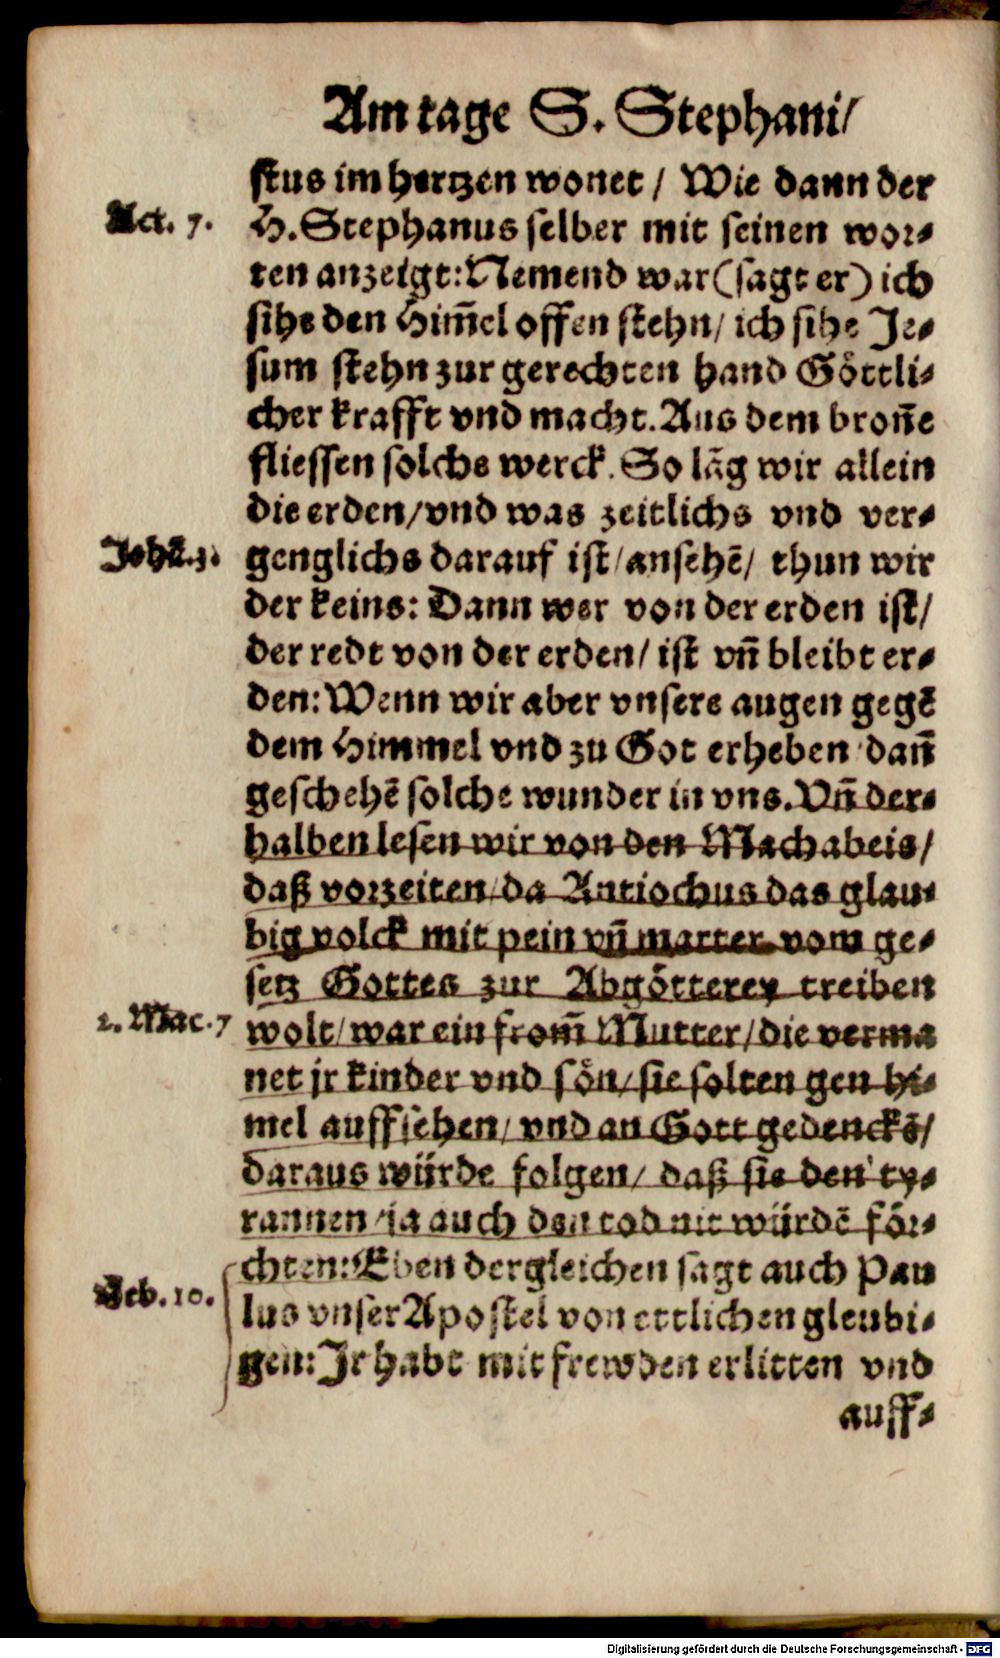 Am tage S. Stephani/
stus im hertzen wonet / Wie dann der
Act. 7. H. Stephanus selber mit seinen wor⸗
ten anzeigt: Nemend war (sagt er) ich
sihe den Him̃el offen stehn/ ich sihe Je⸗
sum stehn zur gerechten hand Göttli⸗
cher krafft vnd macht. Aus dem bron̄e
fliessen solche werck. So lãg wir allein
die erden/vnd was zeitlichs vnd ver⸗
Johã. 3. genglichs darauf ist/ansehẽ/ thun wir
der keins: Dann wer von der erden ist/
der redt von der erden/ ist vñ bleibt er⸗
den: Wenn wir aber vnsere augen gegẽ
dem Himmel vnd zu Got erheben dañ
geschehẽ solche wunder in vns. Vñ der⸗
halben lesen wir von den Machabeis/
daß vorzeiten/da Antiochus das glau⸗
big volck mit pein vñ marter vom ge⸗
setz Gottes zur Abgötterey treiben
2. Mac. 7 wolt/war ein from̃ Mutter/die verma
net jr kinder vnd sön/sie solten gen hi⸗
mel auffsehen/ vnd an Gott gedenckẽ/
daraus würde folgen/ daß sie den ty⸗
rannen/ja auch den tod nit würdẽ för⸗
chten: Eben dergleichen sagt auch Pau
Heb. 10. lus vnser Apostel von ettlichen gleubi⸗
gen: Jr habt mit frewden erlitten vnd
auff⸗
Digitalisierung gefördert durch die Deutsche Forschungsgemeinschaft - DFG